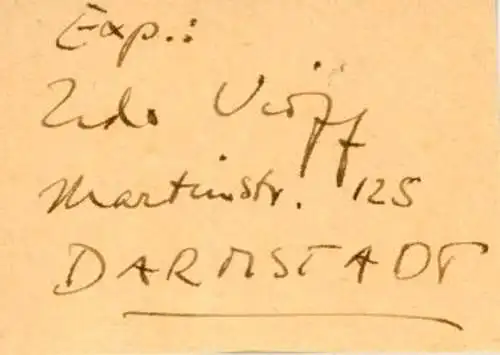 Exp.:
Udo Vioff
Martinstr. 125
DARMSTADT